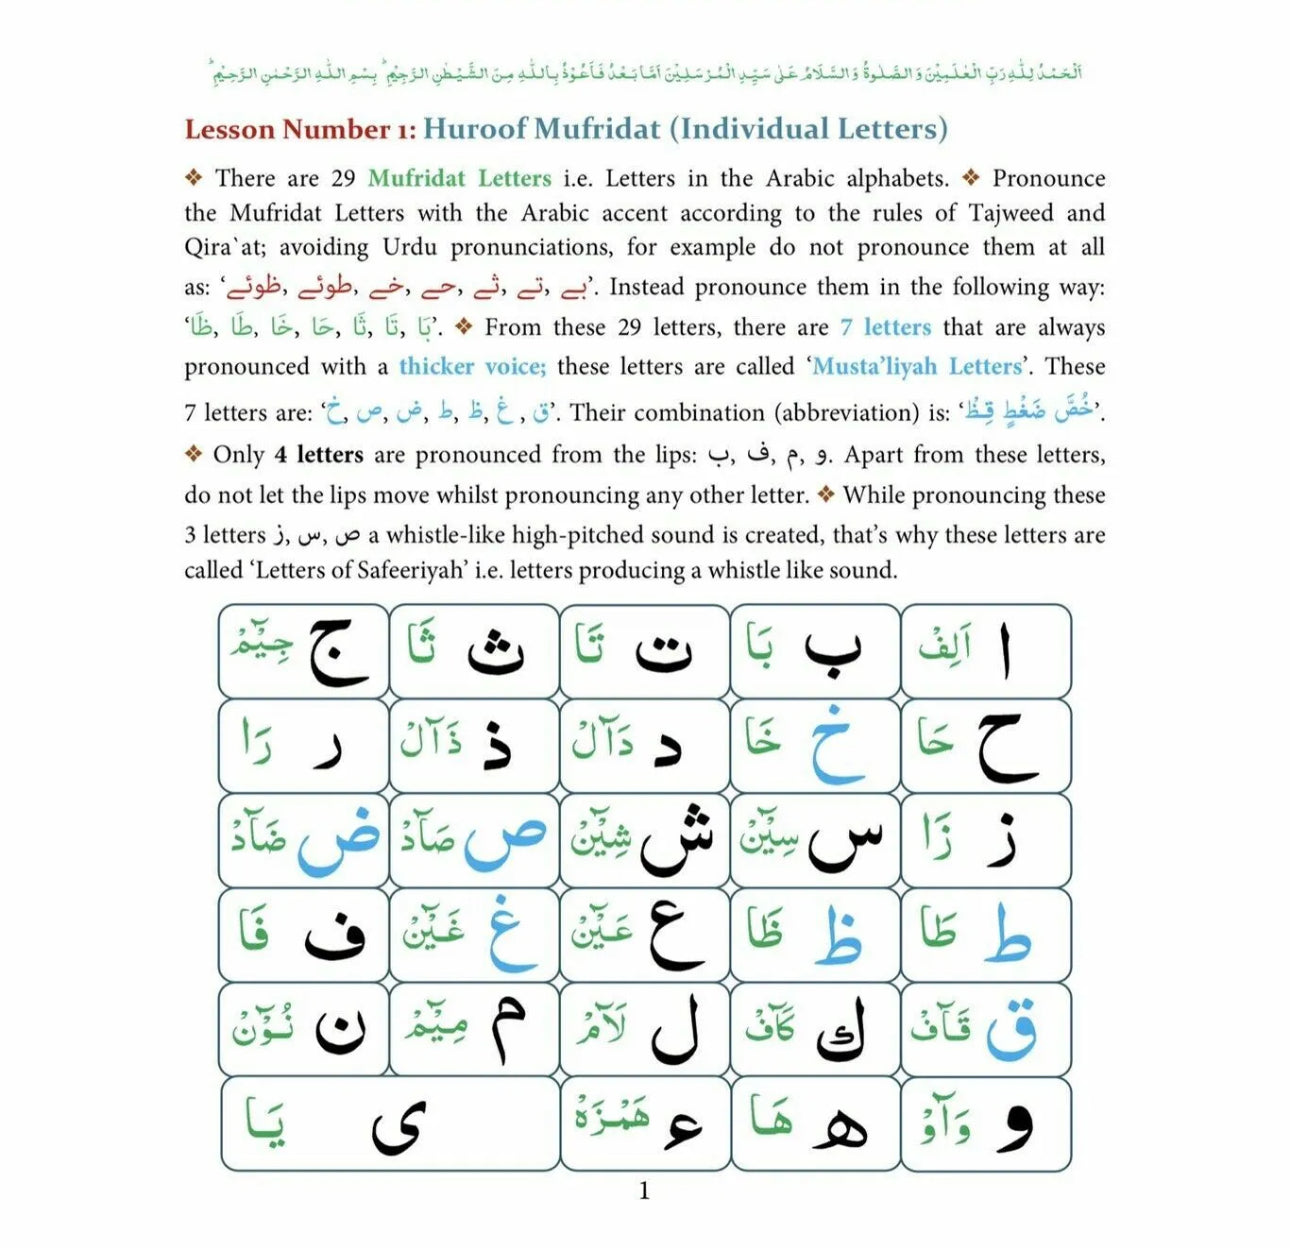 اَلْحَمْدُ لِلّٰهِ رَبِّ الْعٰلَمِيْنَ وَ الصَّلٰوةُ وَ السَّلَامُ عَلٰى سَيِّدِ الْمُرْسَلِيْنَ اَمَّا بَعْدُ فَاَعُوْذُ بِاللّٰهِ مِنَ الشَّيْطٰنِ الرَّجِيْمِ ؕ بِسْمِ اللّٰهِ الرَّحْمٰنِ الرَّحِيْمِ ؕ
Lesson Number 1: Huroof Mufridat (Individual Letters)
❖ There are 29 Mufridat Letters i.e. Letters in the Arabic alphabets. ❖ Pronounce
the Mufridat Letters with the Arabic accent according to the rules of Tajweed and
Qira`at; avoiding Urdu pronunciations, for example do not pronounce them at all
as: ‘بے, تے, ثے, حے, خے, طوئے, ظوئے’. Instead pronounce them in the following way:
‘بَا, تَا, ثَا, حَا, خَا, طَا, ظَا’. ❖ From these 29 letters, there are 7 letters that are always
pronounced with a thicker voice; these letters are called ‘Musta’liyah Letters’. These
7 letters are: ‘خ, ص, ض, ط, ظ, غ, ق’. Their combination (abbreviation) is: ‘خُصَّ ضَغْطٍ قِظْ’.
❖ Only 4 letters are pronounced from the lips: ب, ف, م, و. Apart from these letters,
do not let the lips move whilst pronouncing any other letter. ❖ While pronouncing these
3 letters ز, س, ص a whistle-like high-pitched sound is created, that’s why these letters are
called ‘Letters of Safeeriyah’ i.e. letters producing a whistle like sound.
ا اَلِفْ ب بَا ت تَا ث ثَا ج جِيْٓمْ
ح حَا خ خَا د دَآلْ ذ ذَآلْ ر رَا
ز زَا س سِيْٓنْ ش شِيْٓنْ ص صَآدْ ض ضَآدْ
ط طَا ظ ظَا ع عَيْٓنْ غ غَيْٓنْ ف فَا
ق قَآفْ ك كَآفْ ل لَآمْ م مِيْٓمْ ن نُوْٓنْ
و وَآوْ ه هَا ء هَمْزَهْ ى يَا
1